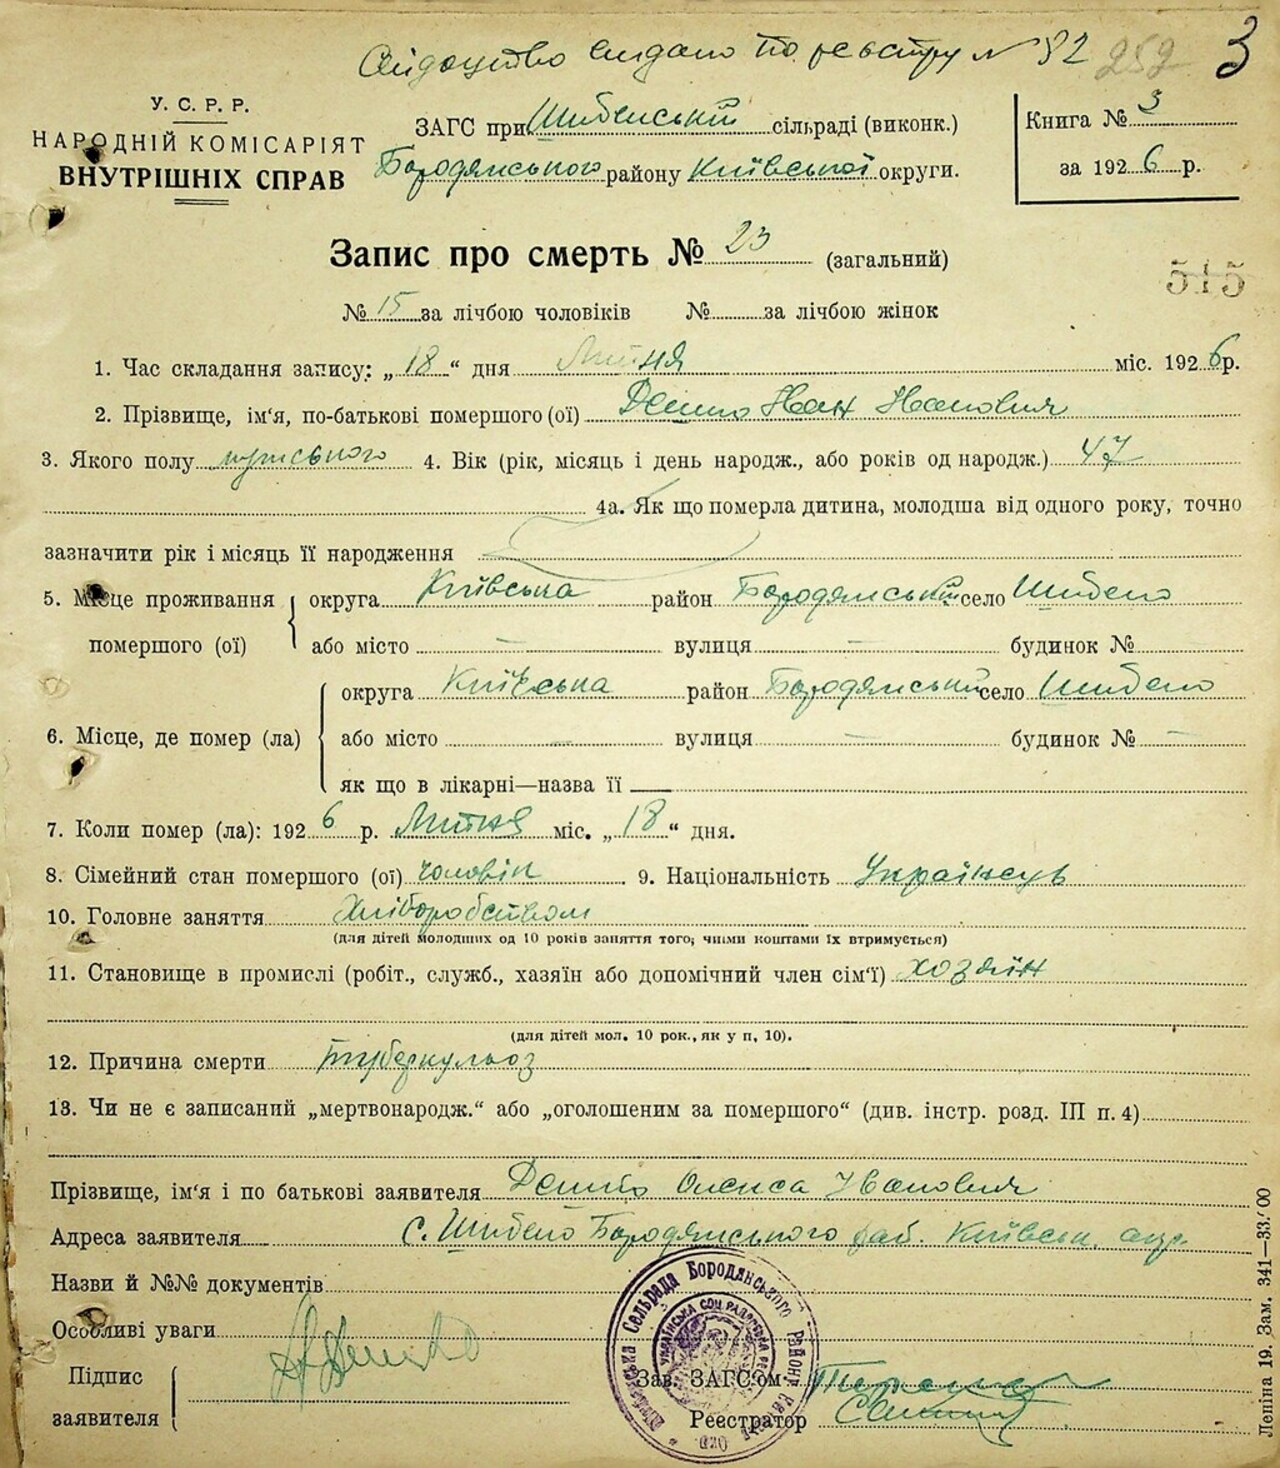 Свідоцтво видано по реєстру № 32 252 3
У. С. Р. Р.
НАРОДНІЙ КОМІСАРІЯТ
ВНУТРІШНІХ СПРАВ
ЗАГС при Шибенській сільраді (виконк.)
Бородянського району Київської округи.
Книга № 3
за 1926 р.
Запис про смерть № 23 (загальний)
515
№ 15 за лічбою чоловіків № за лічбою жінок
1. Час складання запису: „18“ дня Липня міс. 1926 р.
2. Прізвище, ім'я, по-батькові помершого (ої) Иван Иванович
3. Якого полу мужського 4. Вік (рік, місяць і день народж., або років од народж.) 47
4а. Як що померла дитина, молодша від одного року, точно
зазначити рік і місяць її народження
5. Місце проживання помершого (ої) округа Київська район Бородянський село Шибено
або місто — вулиця — будинок №
6. Місце, де помер (ла) округа Київська район Бородянський село Шибено
або місто — вулиця — будинок № —
як що в лікарні—назва її
7. Коли помер (ла): 1926 р. Липня міс. „18“ дня.
8. Сімейний стан помершого (ої) чоловік 9. Національність Українець
10. Головне заняття Хліборобством
(для дітей молодших од 10 років заняття того, чиїми коштами їх втримується)
11. Становище в промислі (робіт., служб., хазяїн або допомічний член сім'ї) хозяїн
(для дітей мол. 10 рок., як у п, 10).
12. Причина смерти туберкульоз
13. Чи не є записаний „мертвонародж.“ або „оголошеним за помершого“ (див. інстр. розд. III п. 4)
Прізвище, ім'я і по батькові заявителя Иванович
Адреса заявителя с. Шибено Бородянського раб. Київськ. окр
Назви й №№ документів
Особливі уваги
Підпис
заявителя
Зав. ЗАГС'ом
Реєстратор
Сельрада Бородянського району
УКРАЇНСЬКА СОЦ РАДЯНСЬКА
Лепіна 19. Зам. 341—33.000